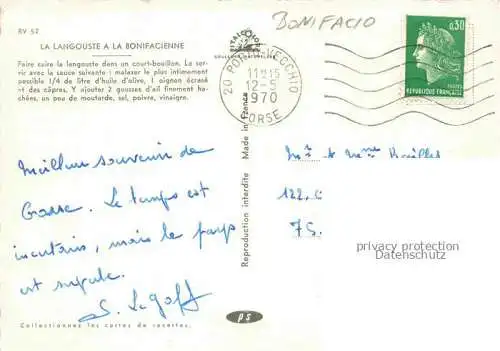 RV 52
BONIFACIO
LA LANGOUSTE A LA BONIFACIENNE
Faire cuire la langouste dans un court-bouillon. La ser-
vir avec la sauce suivante : malaxer le plus intimement
possible 1/4 de litre d'huile d'olive, 1 oignon écrasé
et des câpres. Y ajouter 2 gousses d'ail finement ha-
chées, un peu de moutarde, sel, poivre, vinaigre.
20 PORTO-VECCHIO
11H15
12-5
1970
CORSE
0,30
REPUBLIQUE FRANÇAISE
POSTES
Meilleur souvenir de
Le temps est
incertain, mais le pays
est superbe.
S. Le Goff
Reproduction interdite Made in France
Mr & Mme
122,
75.
privacy protection
Datenschutz
ps
Collectionnez les cartes de recettes.